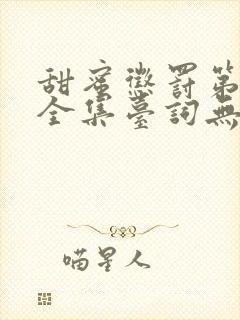 甜蜜懲罰第
全集臺詞無
喵星人